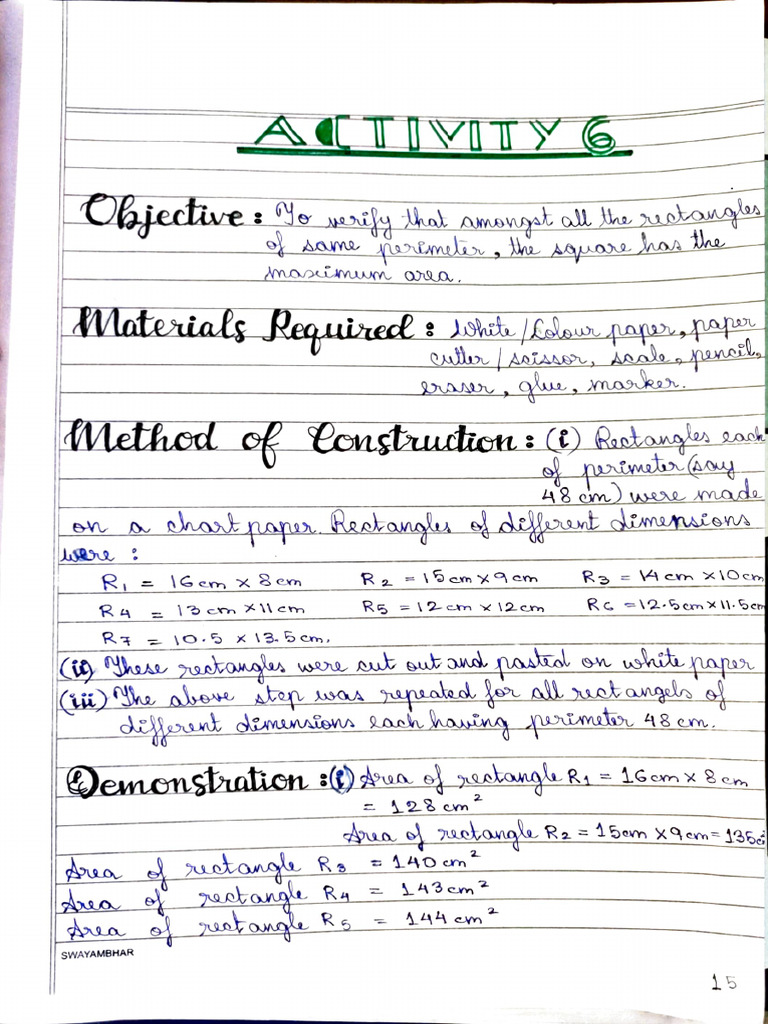 ACTIVITY 6
Objective : To verify that amongst all the rectangles
of same perimeter, the square has the
maximum area.
Materials Required : White/Colour paper, paper
cutter/scissor, scale, pencil,
eraser, glue, marker.
Method of Construction : (i) Rectangles each
of perimeter (say
48 cm) were made
on a chart paper. Rectangles of different dimensions
were :
R1 = 16cm × 8cm R2 = 15cm × 9cm R3 = 14cm × 10cm
R4 = 13cm × 11cm R5 = 12cm × 12cm R6 = 12.5cm × 11.5cm
R7 = 10.5 × 13.5cm.
(ii) These rectangles were cut out and pasted on white paper
(iii) The above step was repeated for all rectangels of
different dimensions each having perimeter 48 cm.
Demonstration : (i) Area of rectangle R1 = 16cm × 8cm
= 128 cm²
Area of rectangle R2 = 15cm × 9cm = 135c
Area of rectangle R3 = 140 cm²
Area of rectangle R4 = 143 cm²
Area of rectangle R5 = 144 cm²
SWAYAMBHAR
15